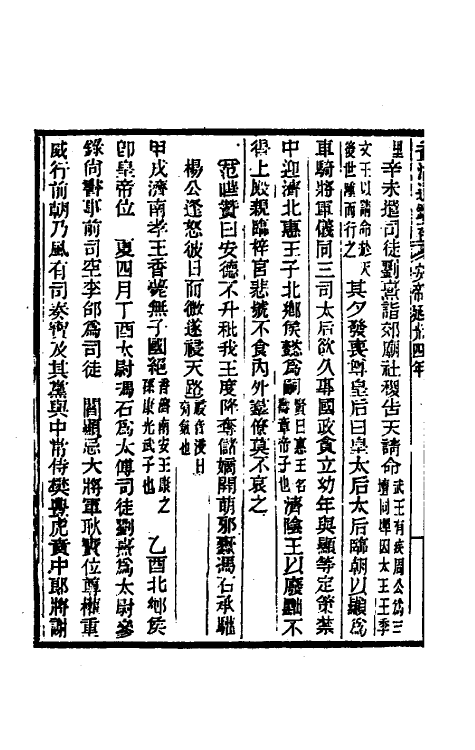 安帝延光四年
里 辛未遣司徒劉熹詣郊廟社稷告天請命 武王有疾周公爲三壇同墠因太王王季
文王以請命於天後世踵而行之 其夕發喪尊皇后曰皇太后太后臨朝以顯爲
車騎將軍儀同三司太后欲久專國政貪立幼年與顯等定策禁
中迎濟北惠王子北鄉侯懿爲嗣 賢曰惠王名壽章帝子也 濟陰王以廢黜不
得上殿親臨梓宮悲號不食內外羣僚莫不哀之
范曄贊曰安德不升秕我王度降奪儲嫡開萌邪蠹馮石承驩
楊公逢怒彼日而微遂祲天路 祲音浸日旁氣也
甲戌濟南孝王香薨無子國絕 香濟南安王康之孫康光武子也 乙酉北鄉侯
卽皇帝位 夏四月丁酉太尉馮石爲太傅司徒劉熹爲太尉參
錄尚書事前司空李郃爲司徒 閻顯忌大將軍耿寶位尊權重
威行前朝乃風有司奏寶及其黨與中常侍樊豐虎賁中郎將謝